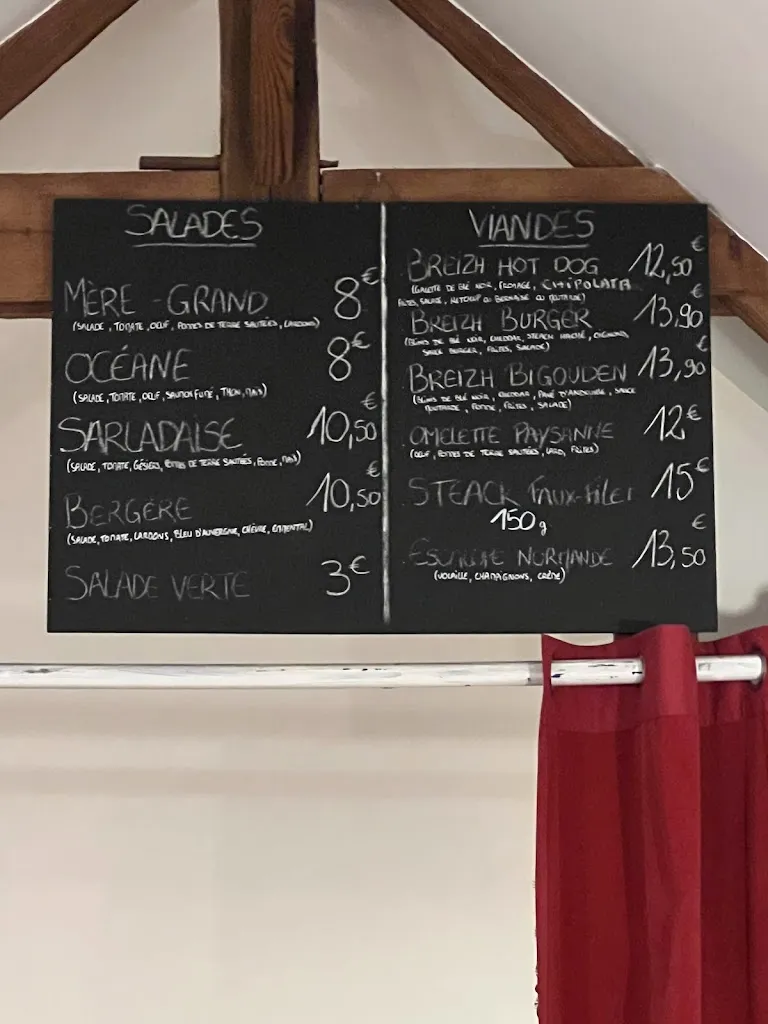 SALADES
MÈRE-GRAND 8€
(SALADE, TOMATE, OEUF, POMMES DE TERRE SAUTÉES, LARDONS)
OCÉANE 8€
(SALADE, TOMATE, OEUF, SAUMON FUMÉ, THON, MAÏS)
SARLADAISE 10,50€
(SALADE, TOMATE, GÉSIERS, POMMES DE TERRE SAUTÉES, POMME, MAÏS)
BERGÈRE 10,50€
(SALADE, TOMATE, LARDONS, BLEU D'AUVERGNE, CHÈVRE, EMMENTAL)
SALADE VERTE 3€
VIANDES
BREIZH HOT DOG 12,50€
(GALETTE DE BLÉ NOIR, FROMAGE, CHIPOLATA
FRITES, SALADE, KETCHUP OU BÉARNAISE OU MOUTARDE)
BREIZH BURGER 13,90€
(BLINIS DE BLÉ NOIR, CHEDDAR, STEACK HACHÉ, OIGNONS,
SAUCE BURGER, FRITES, SALADE)
BREIZH BIGOUDEN 13,90€
(BLINIS DE BLÉ NOIR, CHEDDAR, PAVÉ D'ANDOUILLE, SAUCE
MOUTARDE, POMME, FRITES, SALADE)
OMELETTE PAYSANNE 12€
(OEUF, POMMES DE TERRE SAUTÉES, LARD, FRITES)
STEACK FAUX-FILET 15€
150g
ESCALOPE NORMANDE 13,50€
(VOLAILLE, CHAMPIGNONS, CRÈME)